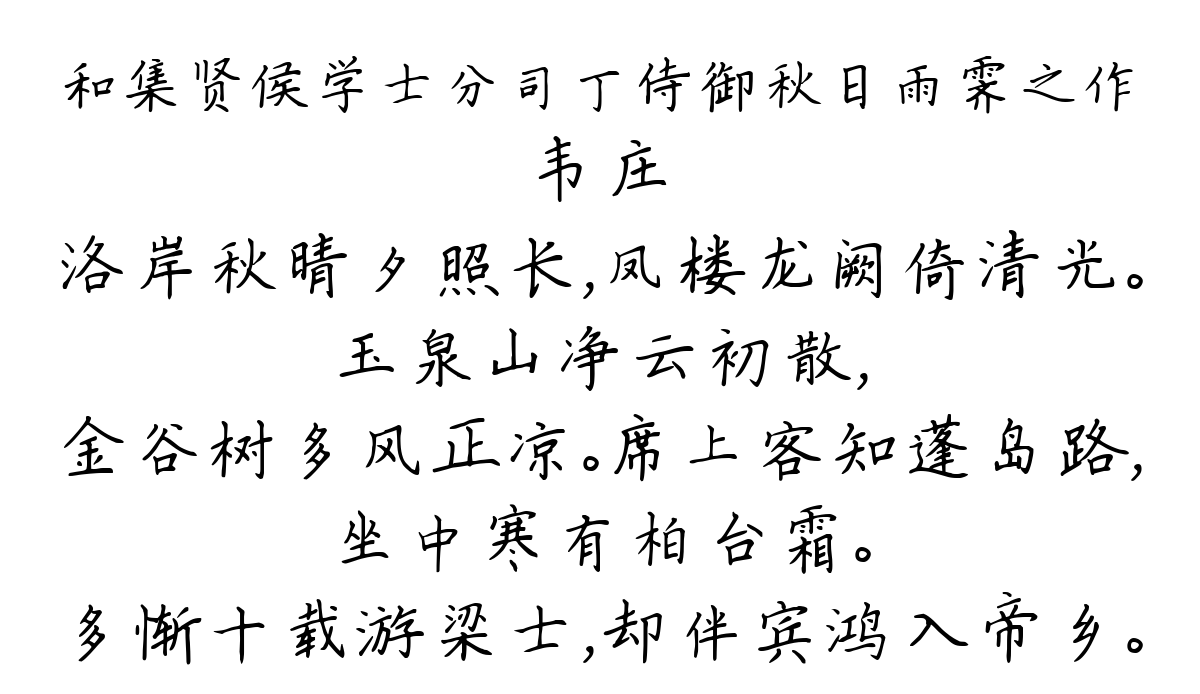 和集贤侯学士分司丁侍御秋日雨霁之作
韦庄
洛岸秋晴夕照长,凤楼龙阙倚清光。
玉泉山净云初散,
金谷树多风正凉。席上客知蓬岛路,
坐中寒有柏台霜。
多惭十载游梁士,却伴宾鸿入帝乡。